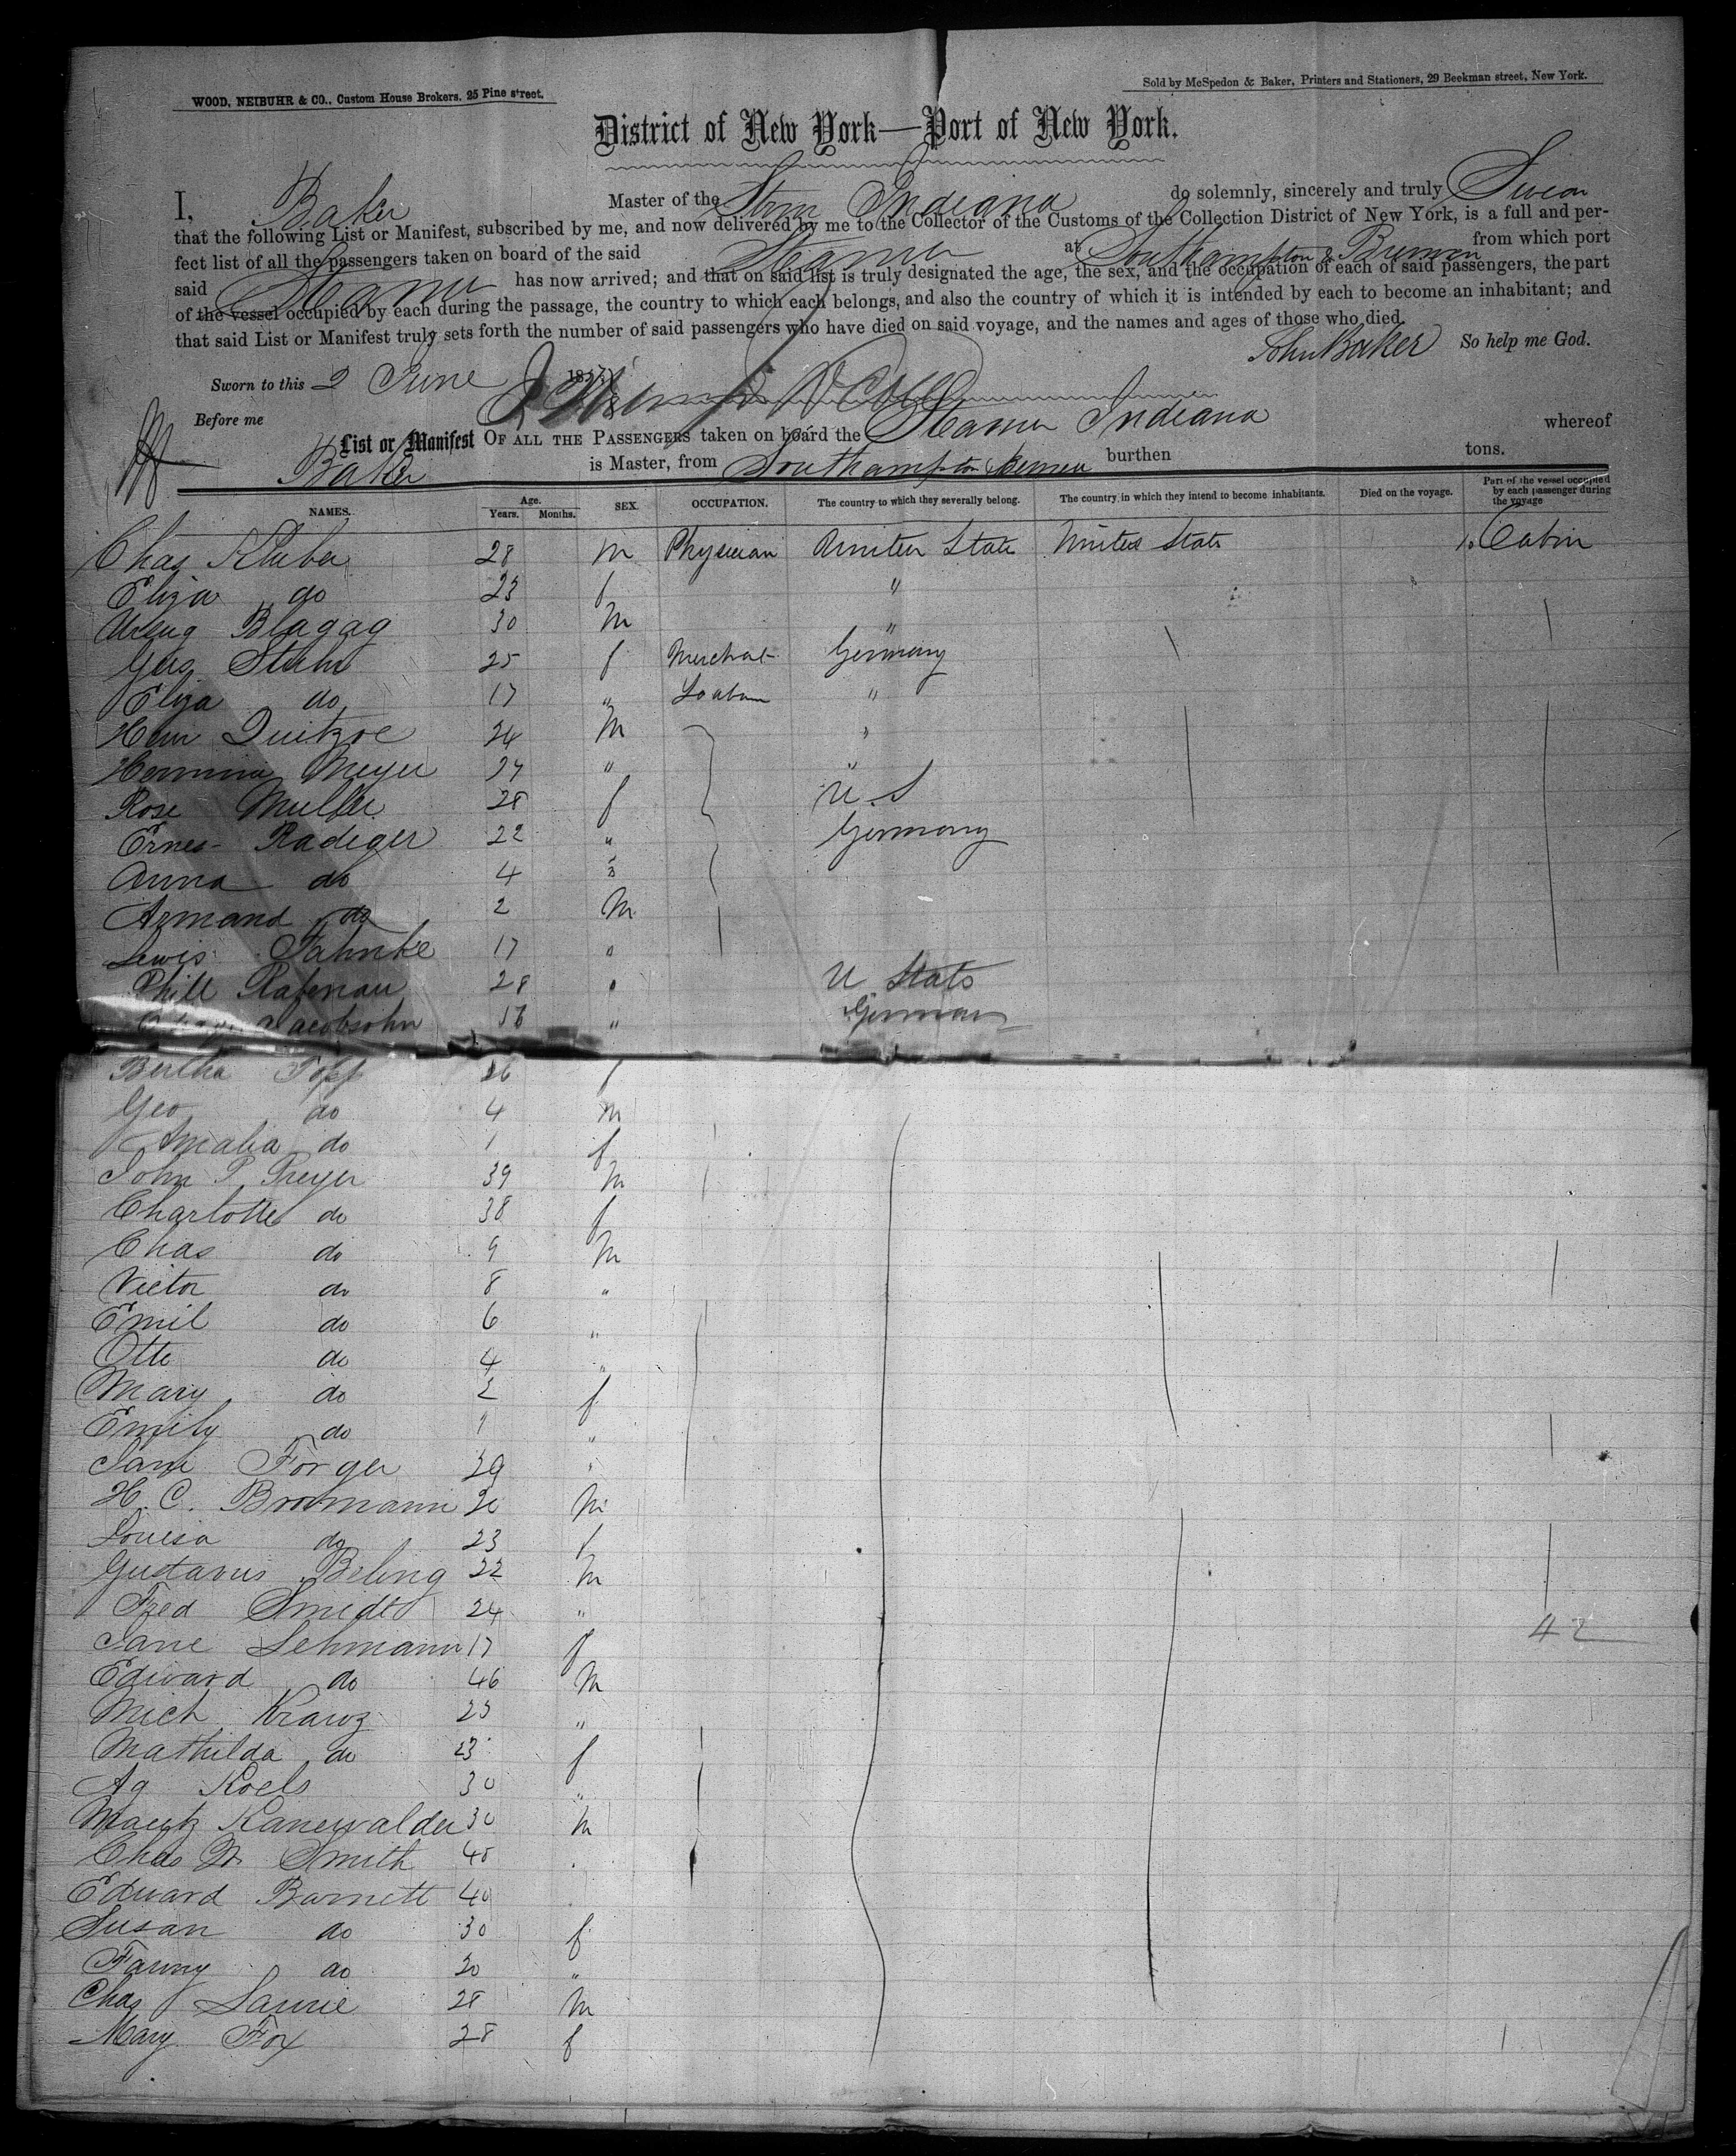 WOOD, NEIBUHR & CO., Custom House Brokers, 25 Pine street.
Sold by McSpedon & Baker, Printers and Stationers, 29 Beekman street, New York.
District of New York—Port of New York.
I, Baker Master of the Stmr Indiana do solemnly, sincerely and truly Swear
that the following List or Manifest, subscribed by me, and now delivered by me to the Collector of the Customs of the Collection District of New York, is a full and per-
fect list of all the passengers taken on board of the said Steamer at Southampton & Bremen from which port
said Steamer has now arrived; and that on said list is truly designated the age, the sex, and the occupation of each of said passengers, the part
of the vessel occupied by each during the passage, the country to which each belongs, and also the country of which it is intended by each to become an inhabitant; and
that said List or Manifest truly sets forth the number of said passengers who have died on said voyage, and the names and ages of those who died.
John Baker So help me God.
Sworn to this 2 June 187
Before me
List or Manifest OF ALL THE PASSENGERS taken on board the Steamer Indiana whereof
Baker is Master, from Southampton Bremen burthen tons.
NAMES. Age. Years. Months. SEX. OCCUPATION. The country to which they severally belong. The country in which they intend to become inhabitants. Died on the voyage. Part of the vessel occupied by each passenger during the voyage
Chas 28 m Physician United State United State 1. Cabin
Eliza do 23 f "
Blagag 30 m "
Stuhr 25 f Merchat Germany
Eliza do 17 " "
Quitzoe 24 m "
Hermina Meyer 27 " "
Rose Muller 28 f U. S
Radeger 22 " Germany
Anna do 4 "
Armand do 2 M
Lewis 17 "
Phill 28 " U Stats
Jacobsohn "
Bertha Topp 26 f
Geo do 4 m
Amalia do 1 f
John P. 39 m
Charlotte do 38 f
Chas do 9 m
Victor do 8 "
Emil do 6 "
Otto do 4 "
Mary do 2 f
Emily do "
Forger 29 "
H. C. m
Louisa do 23 f
Gustavus Beling 22 m
Fred Smidt 24 "
42
Jane Lehmann 17 f
Edward do 46 m
Mich Krauz "
Mathilda do 23 f
Ag Koels 30 "
Kanewalder 30 m
Chas Smith
Edward Barnett 40
Susan do 30 f
Fanny do 20 "
Chas Laurie 28 m
Mary Fox 28 f